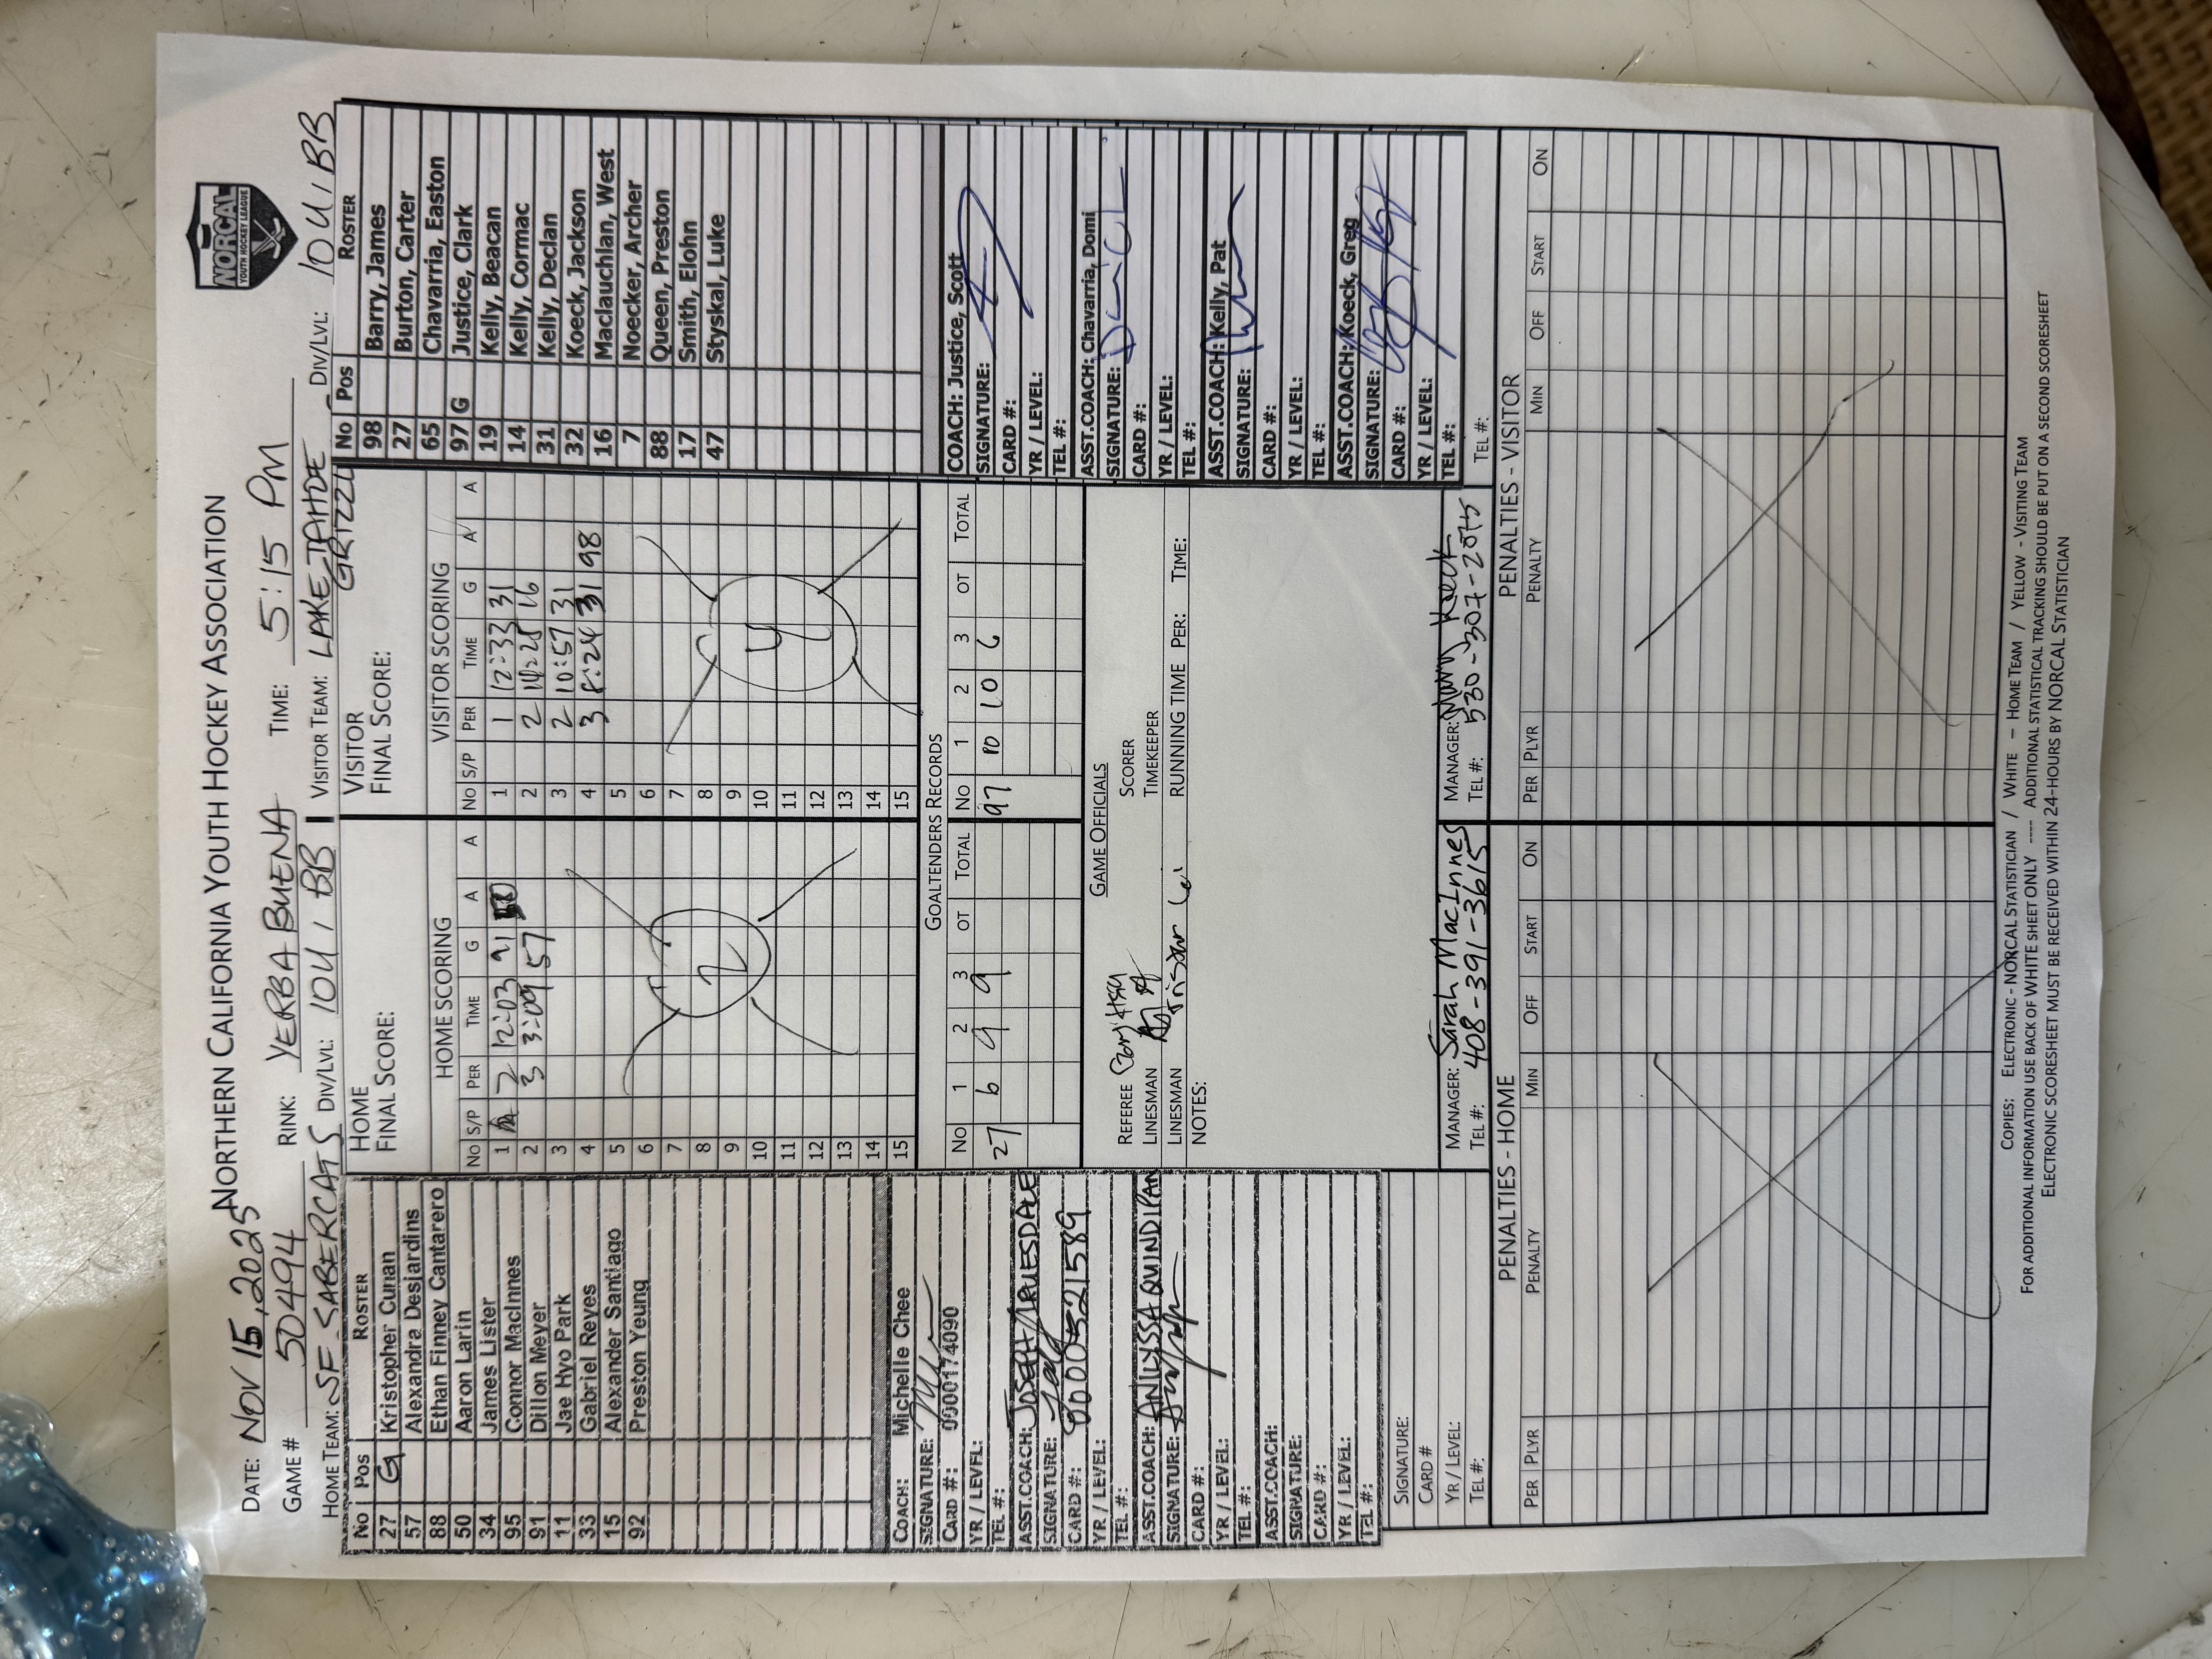 NORCAL
YOUTH HOCKEY LEAGUE
NORTHERN CALIFORNIA YOUTH HOCKEY ASSOCIATION
DATE: NOV 15, 2025
GAME # 50494 RINK: YERBA BUENA TIME: 5:15 PM
HOME TEAM: SF SABERCATS DIV/LVL: 10U1 BB VISITOR TEAM: LAKE TAHOE GRIZZL DIV/LVL: 10U1BB
No Pos ROSTER
27 G Kristopher Cunan
57 Alexandra Desjardins
88 Ethan Finney Cantarero
50 Aaron Larin
34 James Lister
95 Connor MacInnes
91 Dillon Meyer
11 Jae Hyo Park
33 Gabriel Reyes
15 Alexander Santiago
92 Preston Yeung
HOME
FINAL SCORE:
HOME SCORING
No S/P PER TIME G A A
1 2 12:03 91
2 3 3:09 57
3
4
5
6
7
8
9
10
11
12
13
14
15
2
VISITOR
FINAL SCORE:
VISITOR SCORING
No S/P PER TIME G A A
1 1 12:33 31
2 2 16
3 2 10:57 31
4 3 8:24 31 98
5
6
7
8
9
10
11
12
13
14
15
4
No Pos ROSTER
98 Barry, James
27 Burton, Carter
65 Chavarria, Easton
97 G Justice, Clark
19 Kelly, Beacan
14 Kelly, Cormac
31 Kelly, Declan
32 Koeck, Jackson
16 Maclauchlan, West
7 Noecker, Archer
88 Queen, Preston
17 Smith, Elohn
47 Styskal, Luke
COACH: Michelle Chee
SIGNATURE:
CARD #: 0000174090
YR / LEVEL:
TEL #:
ASST.COACH: JOSEPH
SIGNATURE:
CARD #: 0000521589
YR / LEVEL:
TEL #:
ASST.COACH: ANLYSSA QUINDIPAN
SIGNATURE:
CARD #:
YR / LEVEL:
TEL #:
ASST.COACH:
SIGNATURE:
CARD #:
YR / LEVEL:
TEL #:
SIGNATURE:
CARD #
YR / LEVEL:
TEL #:
GOALTENDERS RECORDS
No 1 2 3 OT TOTAL No 1 2 3 OT TOTAL
27 6 9 9 97 10 10 6
GAME OFFICIALS
REFEREE SCORER
LINESMAN TIMEKEEPER
LINESMAN RUNNING TIME PER: TIME:
NOTES:
MANAGER: Sarah MacInnes MANAGER:
TEL #: 408-391-3615 TEL #: 530-307-2075
COACH: Justice, Scott
SIGNATURE:
CARD #:
YR / LEVEL:
TEL #:
ASST.COACH: Chavarria, Domi
SIGNATURE:
CARD #:
YR / LEVEL:
TEL #:
ASST.COACH: Kelly, Pat
SIGNATURE:
CARD #:
YR / LEVEL:
TEL #:
ASST.COACH: Koeck, Greg
SIGNATURE:
CARD #:
YR / LEVEL:
TEL #:
TEL #:
PENALTIES - HOME PENALTIES - VISITOR
PER PLYR PENALTY MIN OFF START ON PER PLYR PENALTY MIN OFF START ON
COPIES: ELECTRONIC - NORCAL STATISTICIAN / WHITE - HOME TEAM / YELLOW - VISITING TEAM
FOR ADDITIONAL INFORMATION USE BACK OF WHITE SHEET ONLY ---- ADDITIONAL STATISTICAL TRACKING SHOULD BE PUT ON A SECOND SCORESHEET
ELECTRONIC SCORESHEET MUST BE RECEIVED WITHIN 24-HOURS BY NORCAL STATISTICIAN